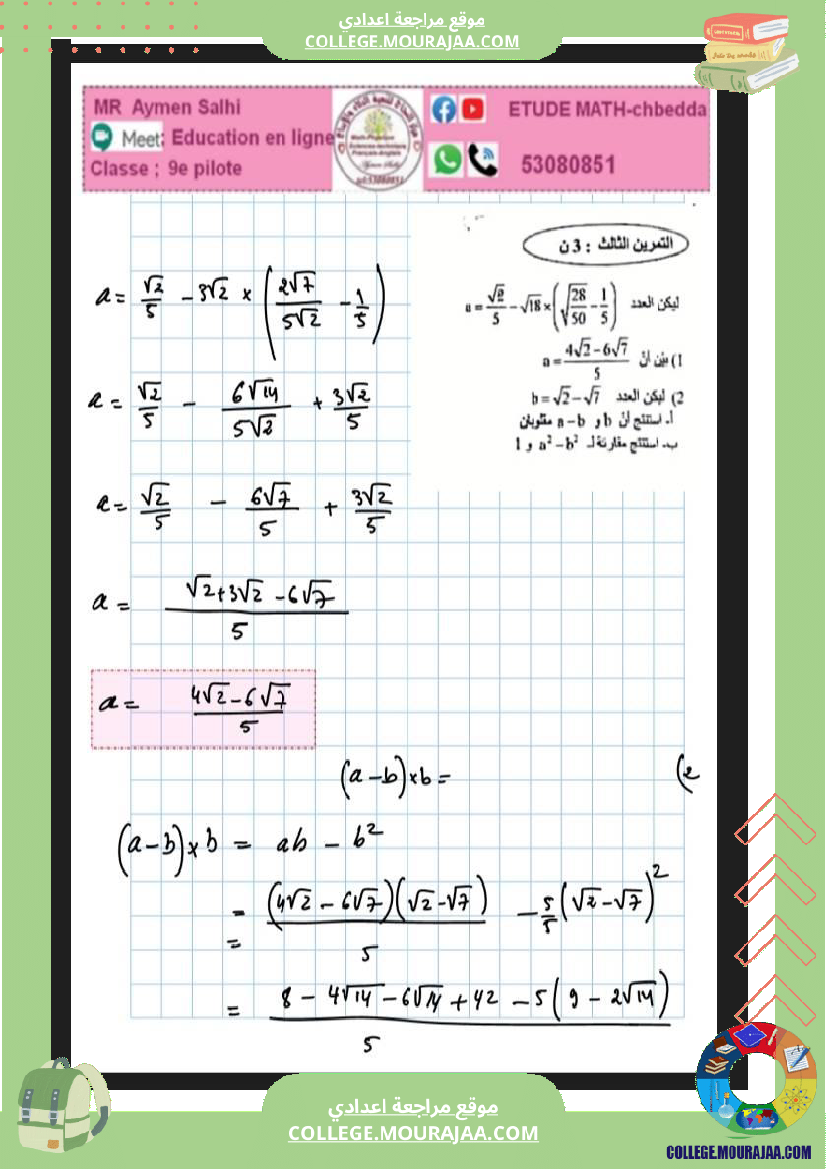 موقع مراجعة اعدادي
COLLEGE.MOURAJAA.COM
MR Aymen Salhi
Meet: Education en ligne
Classe : 9e pilote
ETUDE MATH-chbedda
53080851
التمرين الثالث : 3 ن
ليكن العدد a = √2/5 − √18 × (√(28/50) − 1/5)
1) بين أن a = (4√2 − 6√7)/5
2) ليكن العدد b = √2 − √7
أ- استنتج أن b و a − b مقلوبان
ب- استنتج مقارنة لـ a² − b² و 1
a = √2/5 − 3√2 × (2√7/5√2 − 1/5)
a = √2/5 − 6√14/5√2 + 3√2/5
a = √2/5 − 6√7/5 + 3√2/5
a = (√2 + 3√2 − 6√7)/5
a = (4√2 − 6√7)/5
(2
(a − b) × b =
(a − b) × b = ab − b²
= (4√2 − 6√7)(√2 − √7)/5 − 5/5 (√2 − √7)²
=
= (8 − 4√14 − 6√14 + 42 − 5(9 − 2√14))/5
موقع مراجعة اعدادي
COLLEGE.MOURAJAA.COM
COLLEGE.MOURAJAA.COM